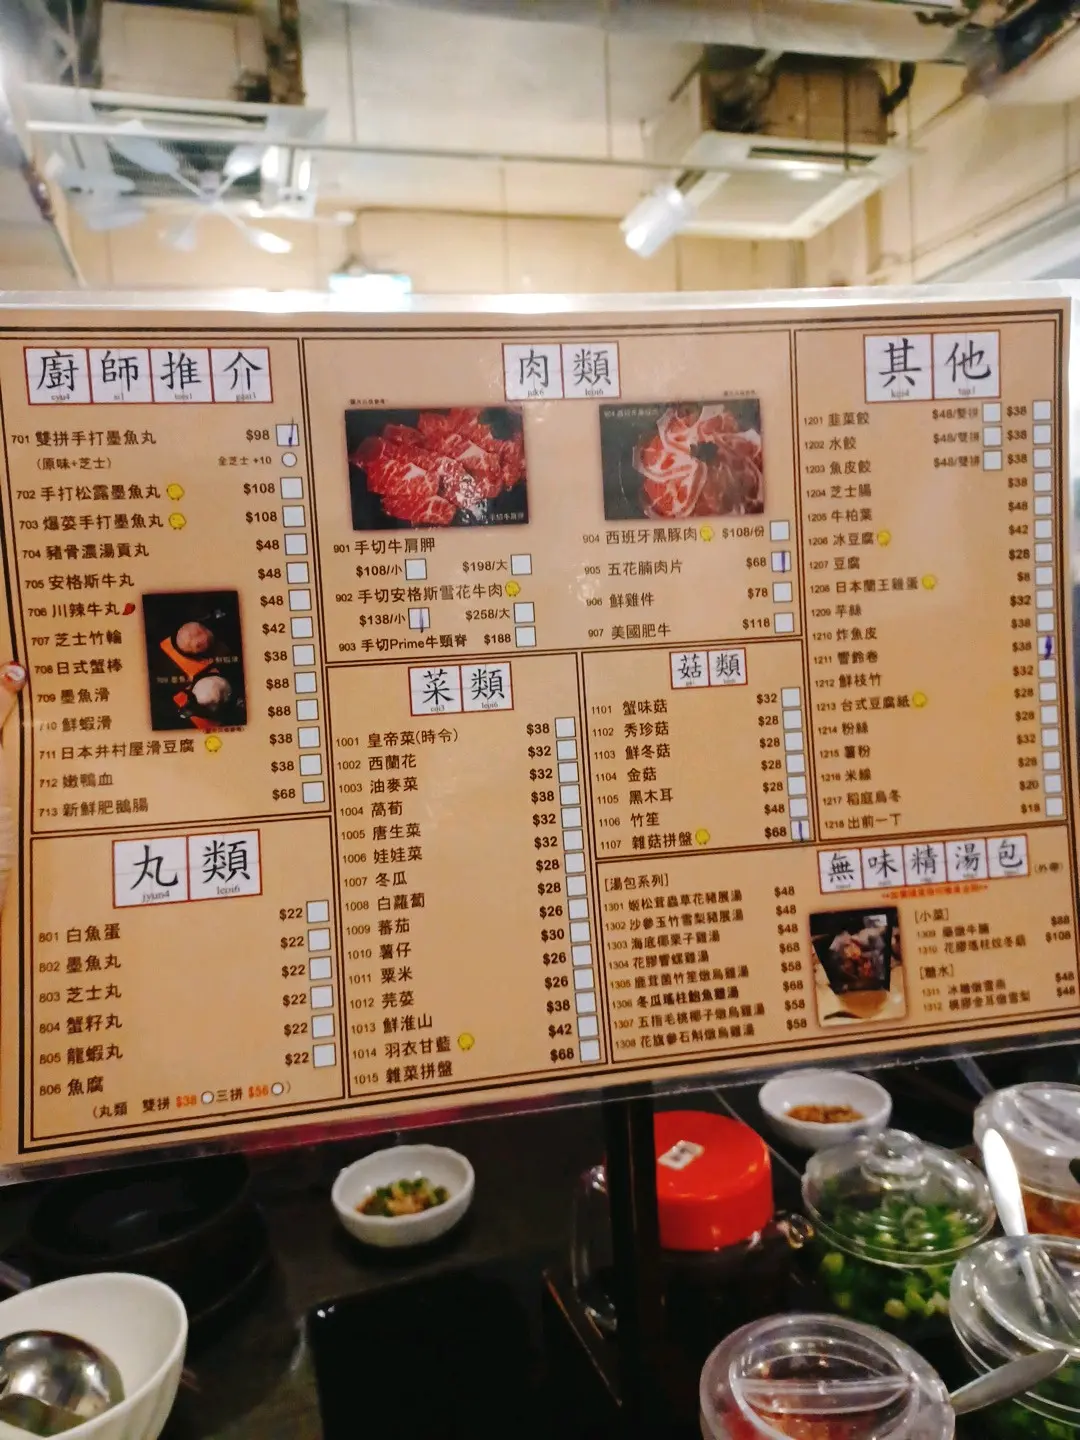 廚師推介
701 雙拼手打墨魚丸 $98
(原味+芝士) 全芝士 +10
702 手打松露墨魚丸 $108
703 爆荽手打墨魚丸 $108
704 豬骨濃湯貢丸 $48
705 安格斯牛丸 $48
706 川辣牛丸 $48
707 芝士竹輪 $42
708 日式蟹棒 $38
709 墨魚滑 $88
710 鮮蝦滑 $88
711 日本井村屋滑豆腐 $38
712 嫩鴨血 $38
713 新鮮肥鵝腸 $68
丸類
jyun4 leoi6
801 白魚蛋 $22
802 墨魚丸 $22
803 芝士丸 $22
804 蟹籽丸 $22
805 龍蝦丸 $22
806 魚腐 $22
(丸類 雙拼 $38 三拼 $56)
肉類
juk6 leoi6
901 手切牛肩胛
$108/小 $198/大
902 手切安格斯雪花牛肉
$138/小 $258/大
903 手切Prime牛頸脊 $188
904 西班牙黑豚肉 $108/份
905 五花腩肉片 $68
906 鮮雞件 $78
907 美國肥牛 $118
菜類
coi3 leoi6
1001 皇帝菜(時令) $38
1002 西蘭花 $32
1003 油麥菜 $32
1004 萵筍 $38
1005 唐生菜 $32
1006 娃娃菜 $32
1007 冬瓜 $28
1008 白蘿蔔 $28
1009 蕃茄 $26
1010 薯仔 $30
1011 粟米 $26
1012 芫荽 $26
1013 鮮淮山 $38
1014 羽衣甘藍 $42
1015 雜菜拼盤 $68
菇類
1101 蟹味菇 $32
1102 秀珍菇 $28
1103 鮮冬菇 $28
1104 金菇 $28
1105 黑木耳 $28
1106 竹笙 $48
1107 雜菇拼盤 $68
其他
kei4 taa1
1201 韮菜餃 $48/雙拼 $38
1202 水餃 $48/雙拼 $38
1203 魚皮餃 $48/雙拼 $38
1204 芝士腸 $38
1205 牛柏葉 $48
1206 冰豆腐 $42
1207 豆腐 $28
1208 日本蘭王雞蛋 $8
1209 芋絲 $32
1210 炸魚皮 $38
1211 響鈴卷 $38
1212 鮮枝竹 $32
1213 台式豆腐紙 $28
1214 粉絲 $28
1215 薯粉 $32
1216 米線 $28
1217 稻庭烏冬 $20
1218 出前一丁 $18
無味精湯包
[湯包系列]
1301 姬松茸蟲草花豬𦟌湯 $48
1302 沙參玉竹雪梨豬𦟌湯 $48
1303 海底椰栗子雞湯 $48
1304 花膠響螺雞湯 $68
1305 鹿茸菌竹笙燉烏雞湯 $58
1306 冬瓜瑤柱鮑魚雞湯 $68
1307 五指毛桃椰子燉烏雞湯 $58
1308 花旗參石斛燉烏雞湯 $58
[小菜]
1309 $88
1310 花膠瑤柱炆冬菇 $108
[糖水]
1311 $48
1312 桃膠金耳燉雪梨 $48